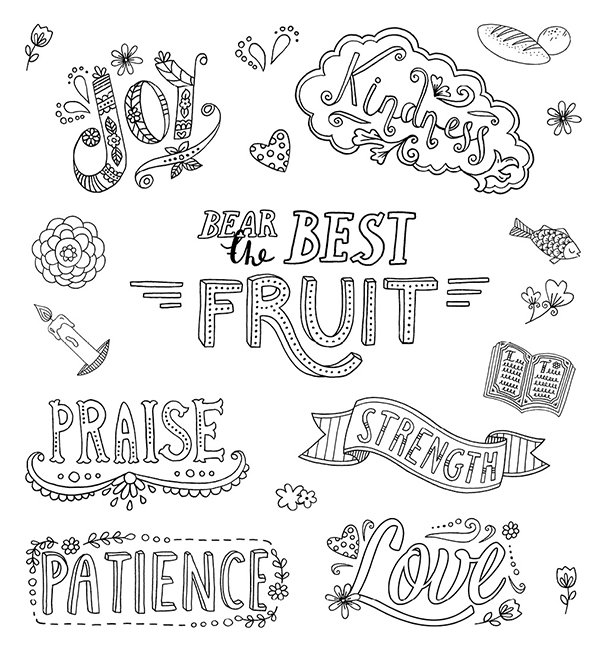 JOY
Kindness
BEAR
the BEST
FRUIT
PRAISE
STRENGTH
PATIENCE
Love